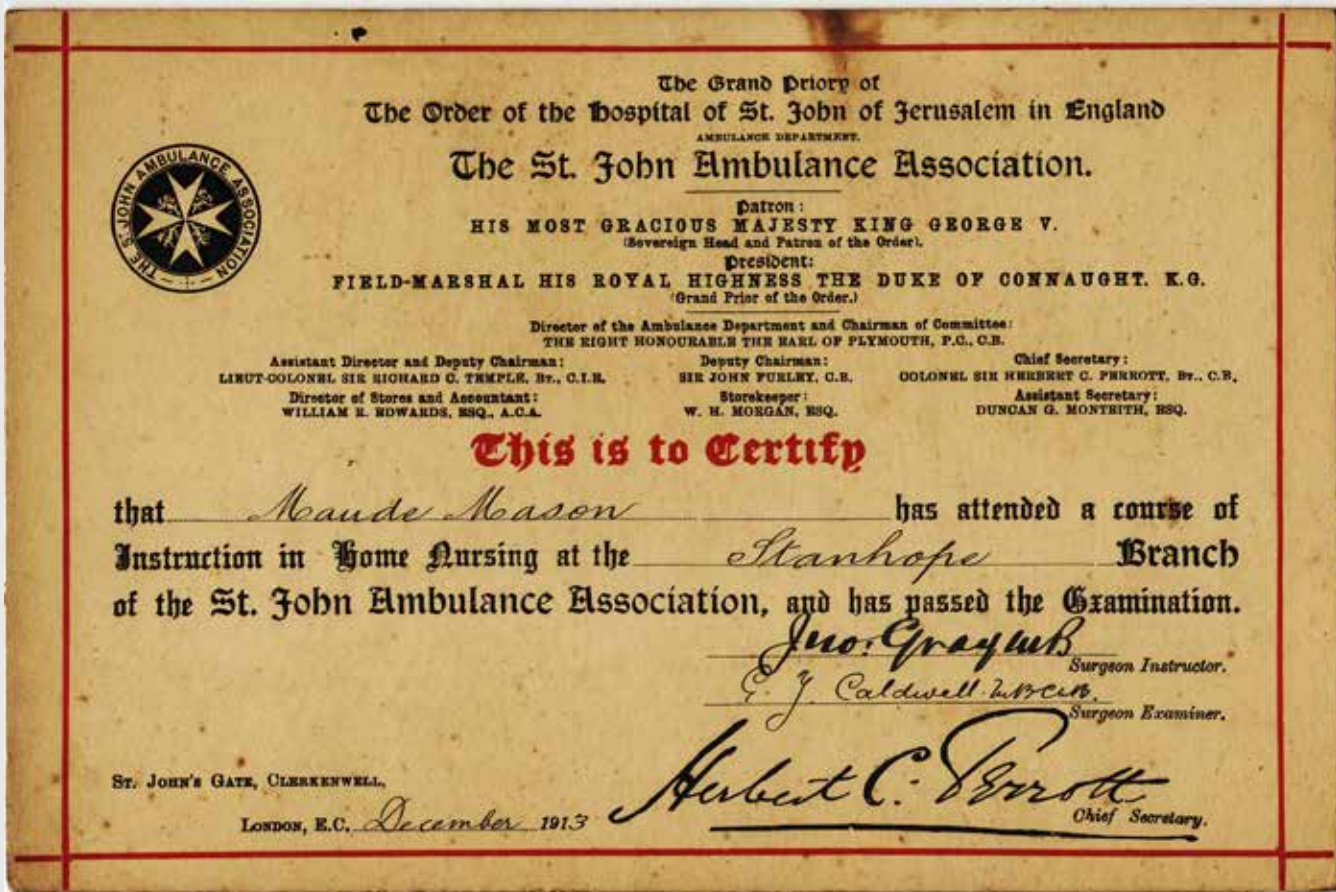 The Grand Priory of
The Order of the Hospital of St. John of Jerusalem in England
AMBULANCE DEPARTMENT.
The St. John Ambulance Association.
THE ST JOHN AMBULANCE ASSOCIATION
Patron:
HIS MOST GRACIOUS MAJESTY KING GEORGE V.
(Sovereign Head and Patron of the Order).
President:
FIELD-MARSHAL HIS ROYAL HIGHNESS THE DUKE OF CONNAUGHT. K.G.
(Grand Prior of the Order.)
Director of the Ambulance Department and Chairman of Committee:
THE RIGHT HONOURABLE THE EARL OF PLYMOUTH, P.C., C.B.
Assistant Director and Deputy Chairman: Deputy Chairman: Chief Secretary:
LIEUT-COLONEL SIR RICHARD C. TEMPLE, BT., C.I.E. SIR JOHN FURLEY, C.B. COLONEL SIR HERBERT C. PERROTT, BT., C.B.
Director of Stores and Accountant: Storekeeper: Assistant Secretary:
WILLIAM R. EDWARDS, ESQ., A.C.A. W. H. MORGAN, ESQ. DUNCAN G. MONTEITH, ESQ.
This is to Certify
that Maude Mason has attended a course of
Instruction in Home Nursing at the Stanhope Branch
of the St. John Ambulance Association, and has passed the Examination.
Jno. Gray
Surgeon Instructor.
Caldwell
Surgeon Examiner.
Herbert C. Perrott
Chief Secretary.
ST. JOHN'S GATE, CLERKENWELL,
LONDON, E.C. December 1913